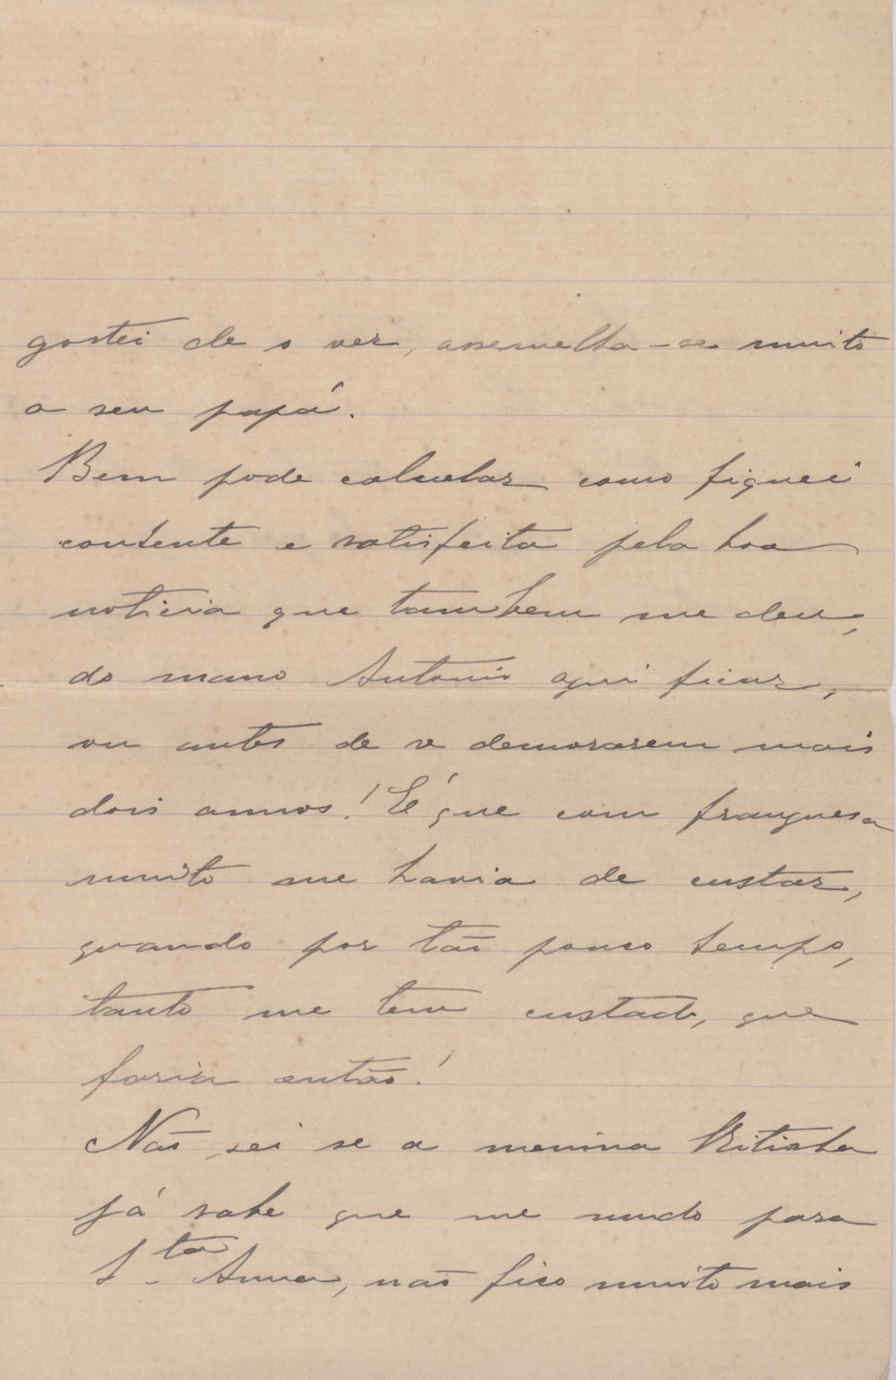 gostei de o ver, assemelha-se muito
a seu papá.
Bem pode calcular como fiquei
contente e satisfeita pela boa
noticia que tambem me deu,
do mano Antonio aqui ficar,
ou antes de se demorarem mais
dois annos! É que com franquesa
muito me havia de custar,
quando por tão pouco tempo,
tanto me tem custado, que
faria então!
Não sei se a menina
já sabe que me mudo para
S.ta Anna, não fico muito mais